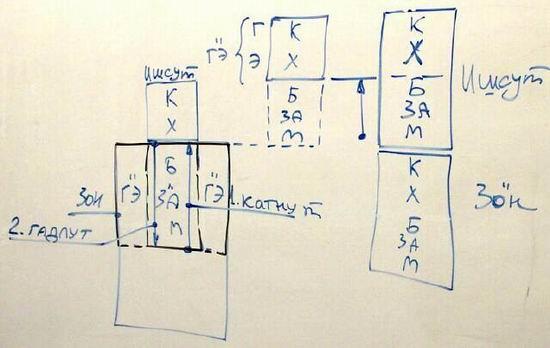 Ишсут
К
Х
Б
ЗА
М
ГЭ
ГЭ
ЗОН
2. ГАДЛУТ
1. КАТНУТ
ГЭ
Г
Э
К
Х
Б
ЗА
М
К
Х
Б
ЗА
М
Ишсут
К
Х
Б
ЗА
М
Зон